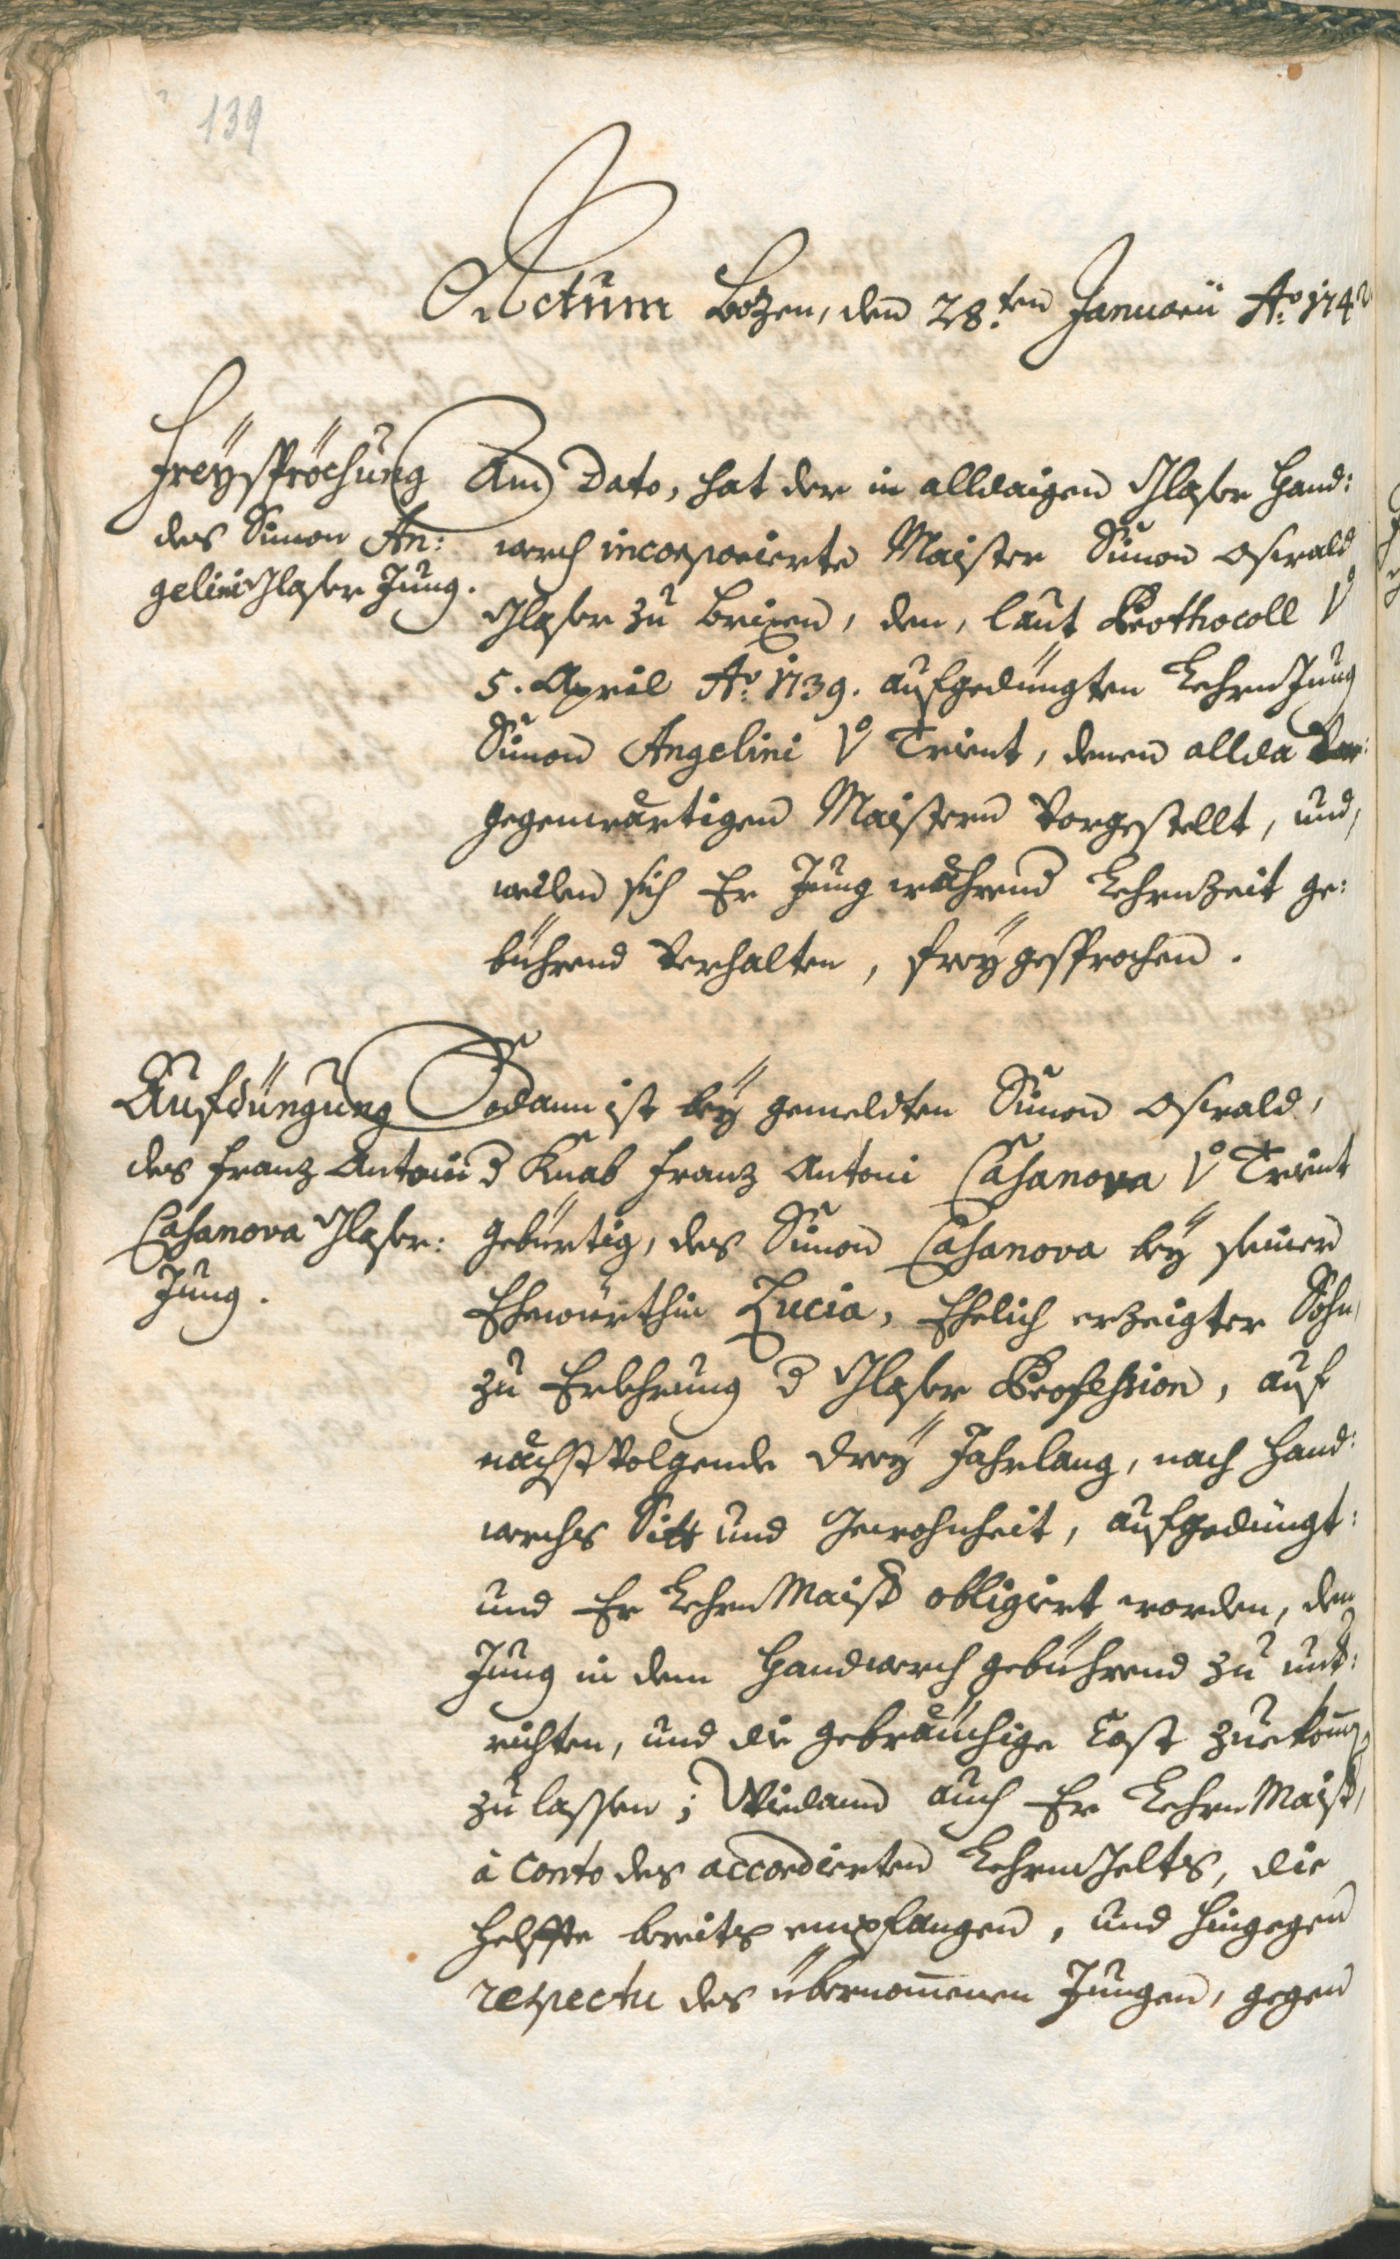 139
Actum Botzen, den 28.ten Januarii Ao. 1742
Freÿspröchung
des Simon An:
gelini Glaser Jung.
Am Dato, hat der in alldaigen Glaser Hand:
werch incorporierte Maister Simon Oswald
Glaser zu Brixen, den, laut Prothocoll v
5. April Ao. 1739. aufgedüngten Lehrn Jung
Simon Angelini v Trient, denen allda
gegenwärtigen Maistern Vorgestellt, und,
weilen sich Er Jung während Lehrnzeit ge:
bührend Verhalten, freÿ gesprochen.
Aufdüngung
des Franz Antoni
Casanova Glaser:
Jung.
Sodann ist beÿ gemeldten Simon Oswald,
d Knab Franz Antoni Casanova v Trient
gebürtig, des Simon Casanova beÿ seiner
Ehewürthin Lucia, Ehelich erzeigter Sohn,
zu Erlehrnung d Glaser Profession, auf
nächst Volgende dreÿ Jahrlang, nach Hand:
werchs Sitt und Gewohnheit, aufgedüngt:
und Er Lehrn Maistr obligiert worden, dem
Jung in dem Handwerch gebührend zu unt:
richten, und die gebräuchige Cost zuekomen
zu lassen; Wiedann auch Er Lehrn Maistr,
à conto des accordierten Lehrn Gelts, die
Helffte bereits empfangen, und hingegen
respectu des übernomenen Jungen, gegen